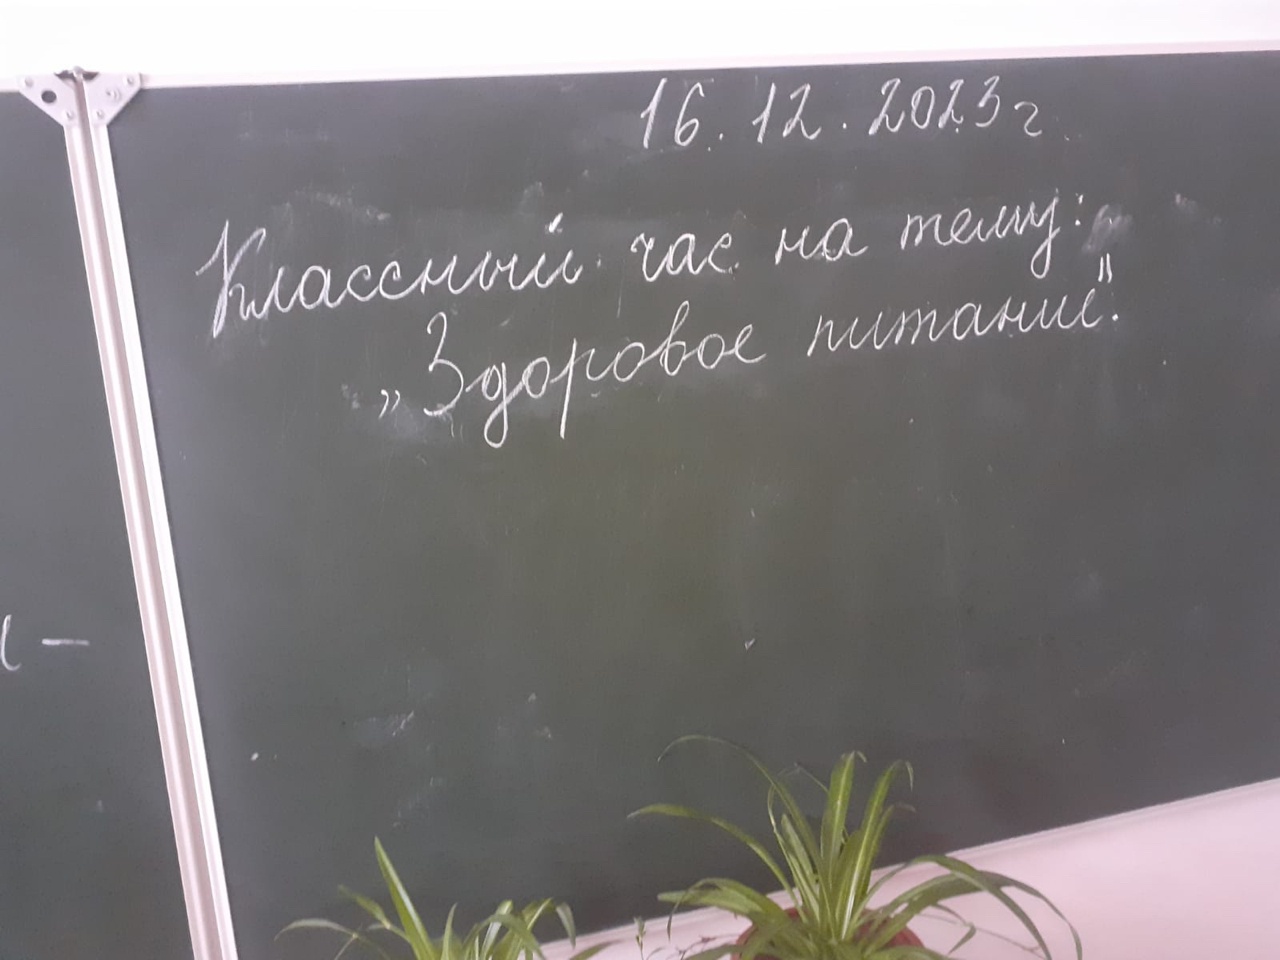 16.12.2023г
Классный час на тему:
„Здоровое питание".